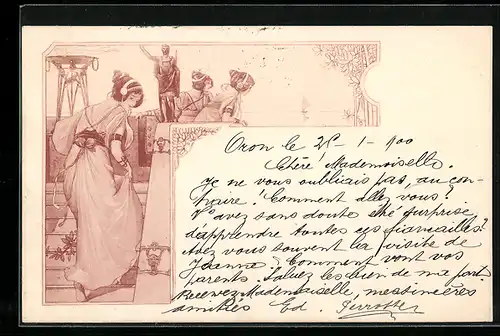 Oron le 25 - 1 - 900
Chère Mademoiselle.
Je ne vous oubliais pas, au con-
traire! Comment allez vous?
V'avez sans doute été surprise
d'apprendre toutes ces fiançailles!
Avez vous souvent la visite de
Jeanne? Comment vont vos
parents. Saluez les bien de ma part
Recevez Mademoiselle, mes sincères
amitiés Ed. Perrottet